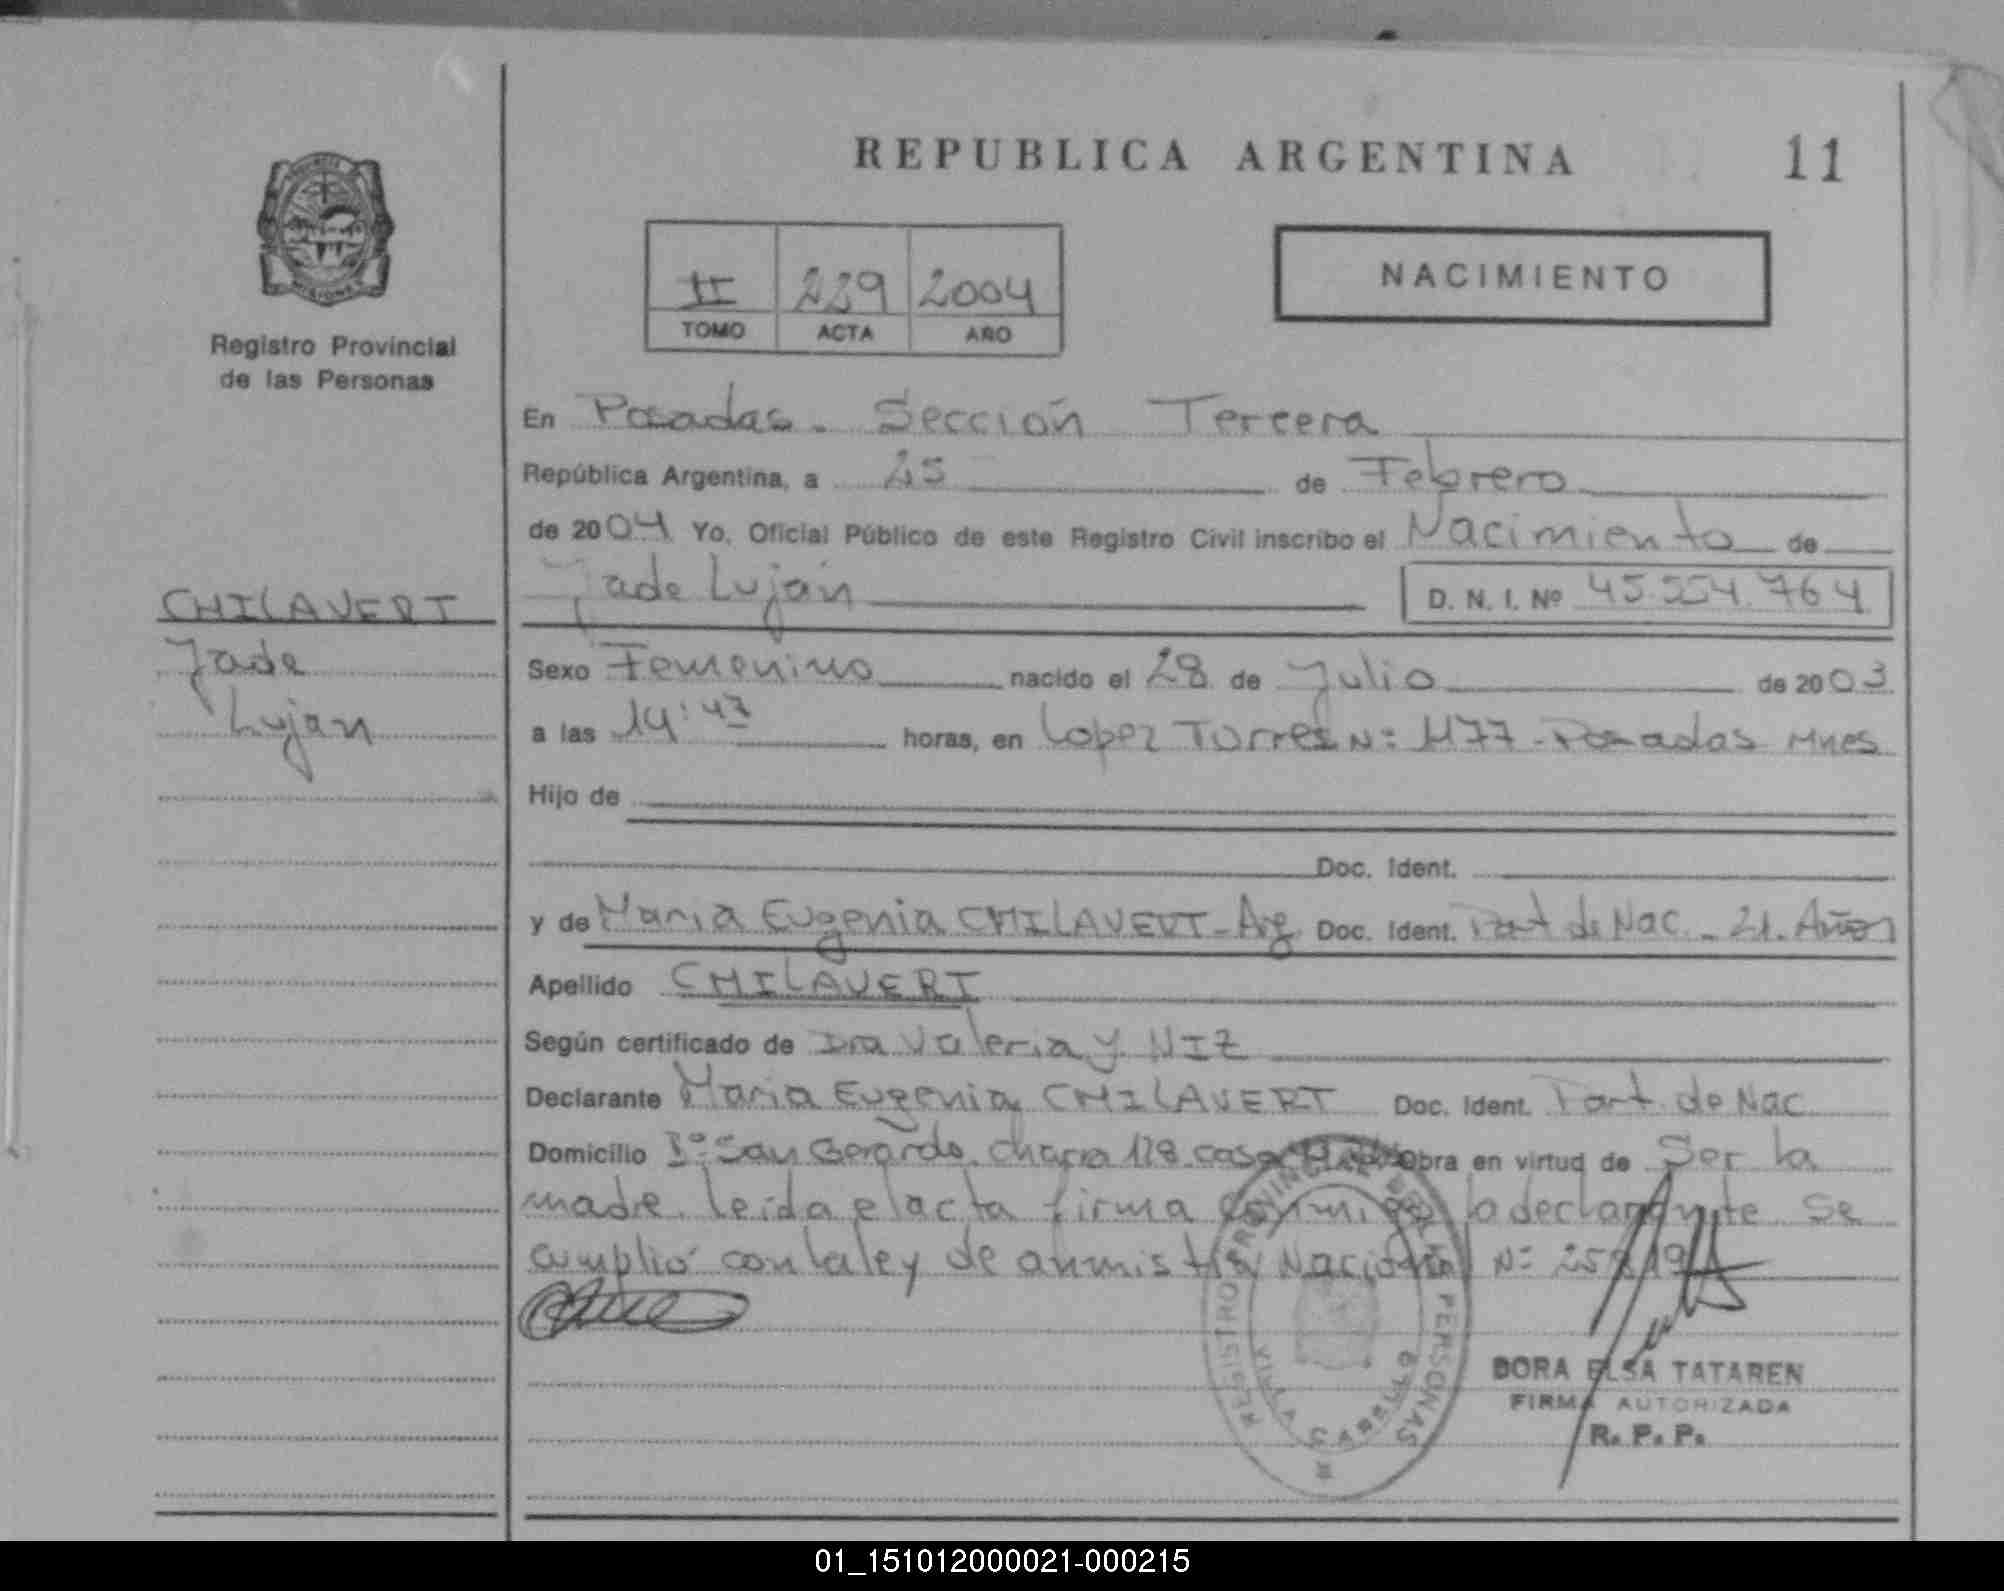 REPUBLICA ARGENTINA 11
II 229 2004
TOMO ACTA AÑO
NACIMIENTO
MISIONES
Registro Provincial
de las Personas
CHILAVERT
Jade
Lujan
En Posadas. Sección Tercera
República Argentina, a 25 de Febrero
de 2004 Yo, Oficial Público de este Registro Civil inscribo el Nacimiento de
Jade Luján D. N. I. Nº 45.554.764
Sexo Femenino nacido el 28 de Julio de 2003
a las 14:47 horas, en Lopez Torres Nº 1177 - Posadas Mnes
Hijo de
Doc. Ident.
y de Maria Eugenia CHILAVERT - Arg Doc. Ident. Part de Nac. - 21. Años
Apellido CHILAVERT
Según certificado de Dra Valeria Y. NIZ
Declarante Maria Eugenia CHILAVERT Doc. Ident. Part. de Nac
Domicilio Bº San Gerardo. chacra 128 casa obra en virtud de Ser la
madre. leida el acta firma conmigo la declarante se
cumplió con la ley de annistia Nacional Nº
REGISTRO PROVINCIAL DE LAS PERSONAS
VILLA CABELLO
DORA ELSA TATAREN
FIRMA AUTORIZADA
R. P. P.
01_151012000021-000215